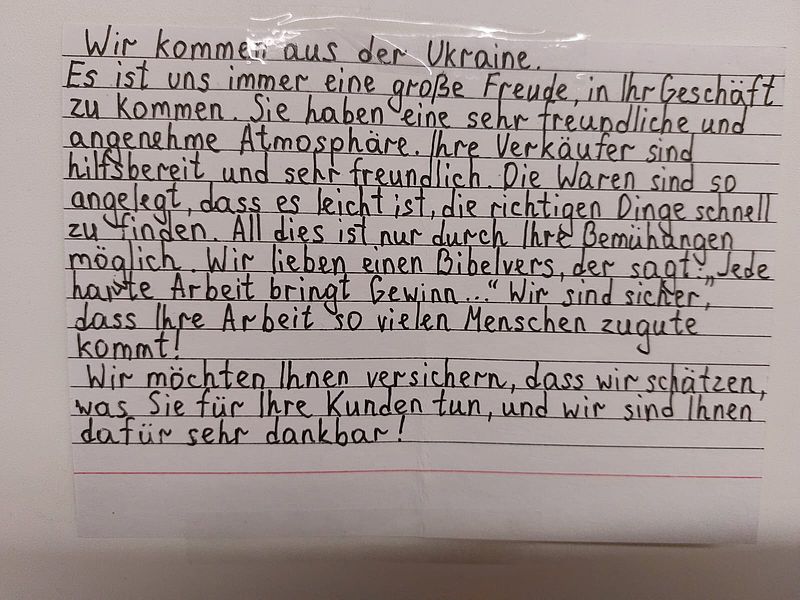 Wir kommen aus der Ukraine.
Es ist uns immer eine große Freude, in Ihr Geschäft
zu kommen. Sie haben eine sehr freundliche und
angenehme Atmosphäre. Ihre Verkäufer sind
hilfsbereit und sehr freundlich. Die Waren sind so
angelegt, dass es leicht ist, die richtigen Dinge schnell
zu finden. All dies ist nur durch Ihre Bemühungen
möglich. Wir lieben einen Bibelvers, der sagt: „Jede
harte Arbeit bringt Gewinn..." Wir sind sicher,
dass Ihre Arbeit so vielen Menschen zugute
kommt!
Wir möchten Ihnen versichern, dass wir schätzen,
was Sie für Ihre Kunden tun, und wir sind Ihnen
dafür sehr dankbar!